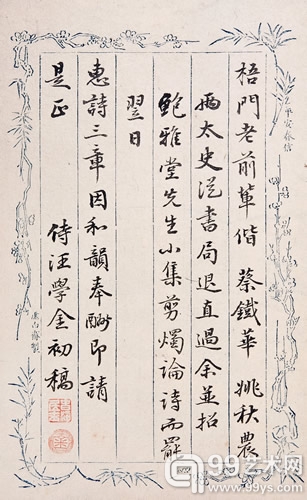 梧門老前輩偕 蔡鐵華 姚秋農
兩太史從書局退直過余並招
鮑雅堂先生小集剪燭論詩而罷
翌日
惠詩三章因和韻奉酬即請
是正
侍汪學金初稿
99艺术网
www.99ys.com